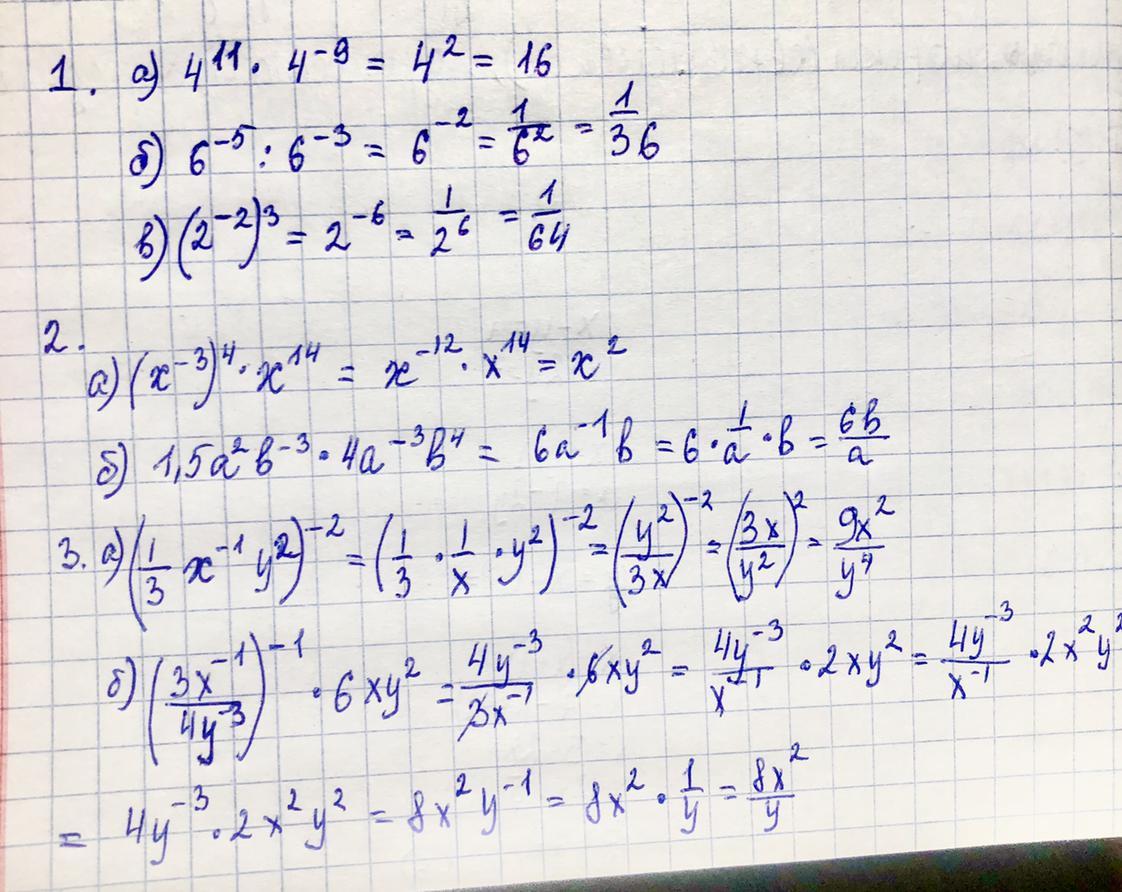 1. а) 4¹¹ · 4⁻⁹ = 4² = 16
б) 6⁻⁵ : 6⁻³ = 6⁻² = 1/6² = 1/36
в) (2⁻²)³ = 2⁻⁶ = 1/2⁶ = 1/64
2.
а) (x⁻³)⁴ · x¹⁴ = x⁻¹² · x¹⁴ = x²
б) 1,5a²b⁻³ · 4a⁻³b⁴ = 6a⁻¹b = 6 · 1/a · b = 6b/a
3. а) (1/3 x⁻¹y²)⁻² = (1/3 · 1/x · y²)⁻² = (y²/3x)⁻² = (3x/y²)² = 9x²/y⁴
б) (3x⁻¹/4y⁻³)⁻¹ · 6xy² = 4y⁻³/3x⁻¹ · 6xy² = 4y⁻³/x⁻¹ · 2xy² = 4y⁻³/x⁻¹ · 2x²y²
= 4y⁻³ · 2x²y² = 8x²y⁻¹ = 8x² · 1/y = 8x²/y